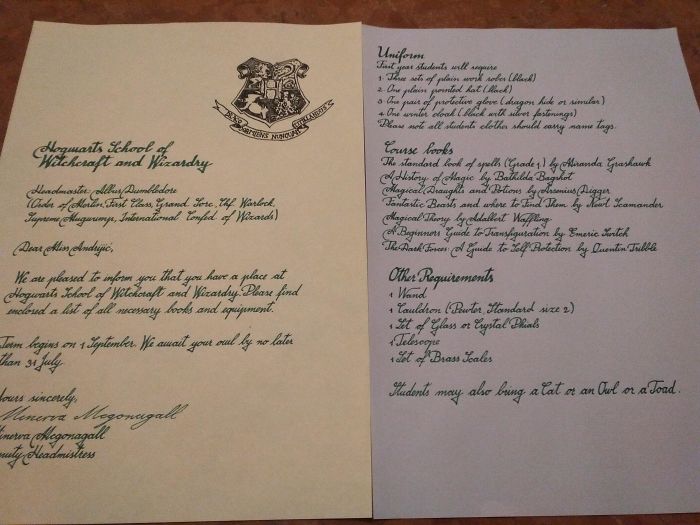 DRACO DORMIENS NUNQUAM TITILLANDUS
Hogwarts School of
Witchcraft and Wizardry
Headmaster: Albus Dumbledore
(Order of Merlin, First Class, Grand Sorc, Chf. Warlock,
Supreme Mugwump, International Confed of Wizards)
Dear Miss Andrijic,
We are pleased to inform you that you have a place at
Hogwarts School of Witchcraft and Wizardry. Please find
enclosed a list of all necessary books and equipment.
Term begins on 1 September. We await your owl by no later
than 31 July.
Yours sincerely,
Minerva Mcgonagall
Minerva Mcgonagall
puty Headmistress
Uniform
First year students will require
1. Three sets of plain work robes (black)
2. One plain pointed hat (black)
3. One pair of protective glove (dragon hide or similar)
4. One winter cloak (black with silver fastenings)
Please note all students clothes should carry name tags.
Course books
The standard book of spells (Grade 1) by Miranda Grashawk
A History of Magic by Bathilda Bagshot
Magical Draughts and Potions by Arsenius Digger
Fantastic Beasts and where to Find Them by Newt Scamander
Magical Theory by Adalbert Waffling
A Beginners Guide to Transfiguration by Emeric Switch
The Dark Forces: A Guide to Self Protection by Quentin Tribble
Other Requirements
1 Wand
1 Cauldron (Pewter, Standard size 2)
1 Set of Glass or Crystal Phials
1 Telescope
1 Set of Brass Scales
Students may also bring a Cat or an Owl or a Toad.